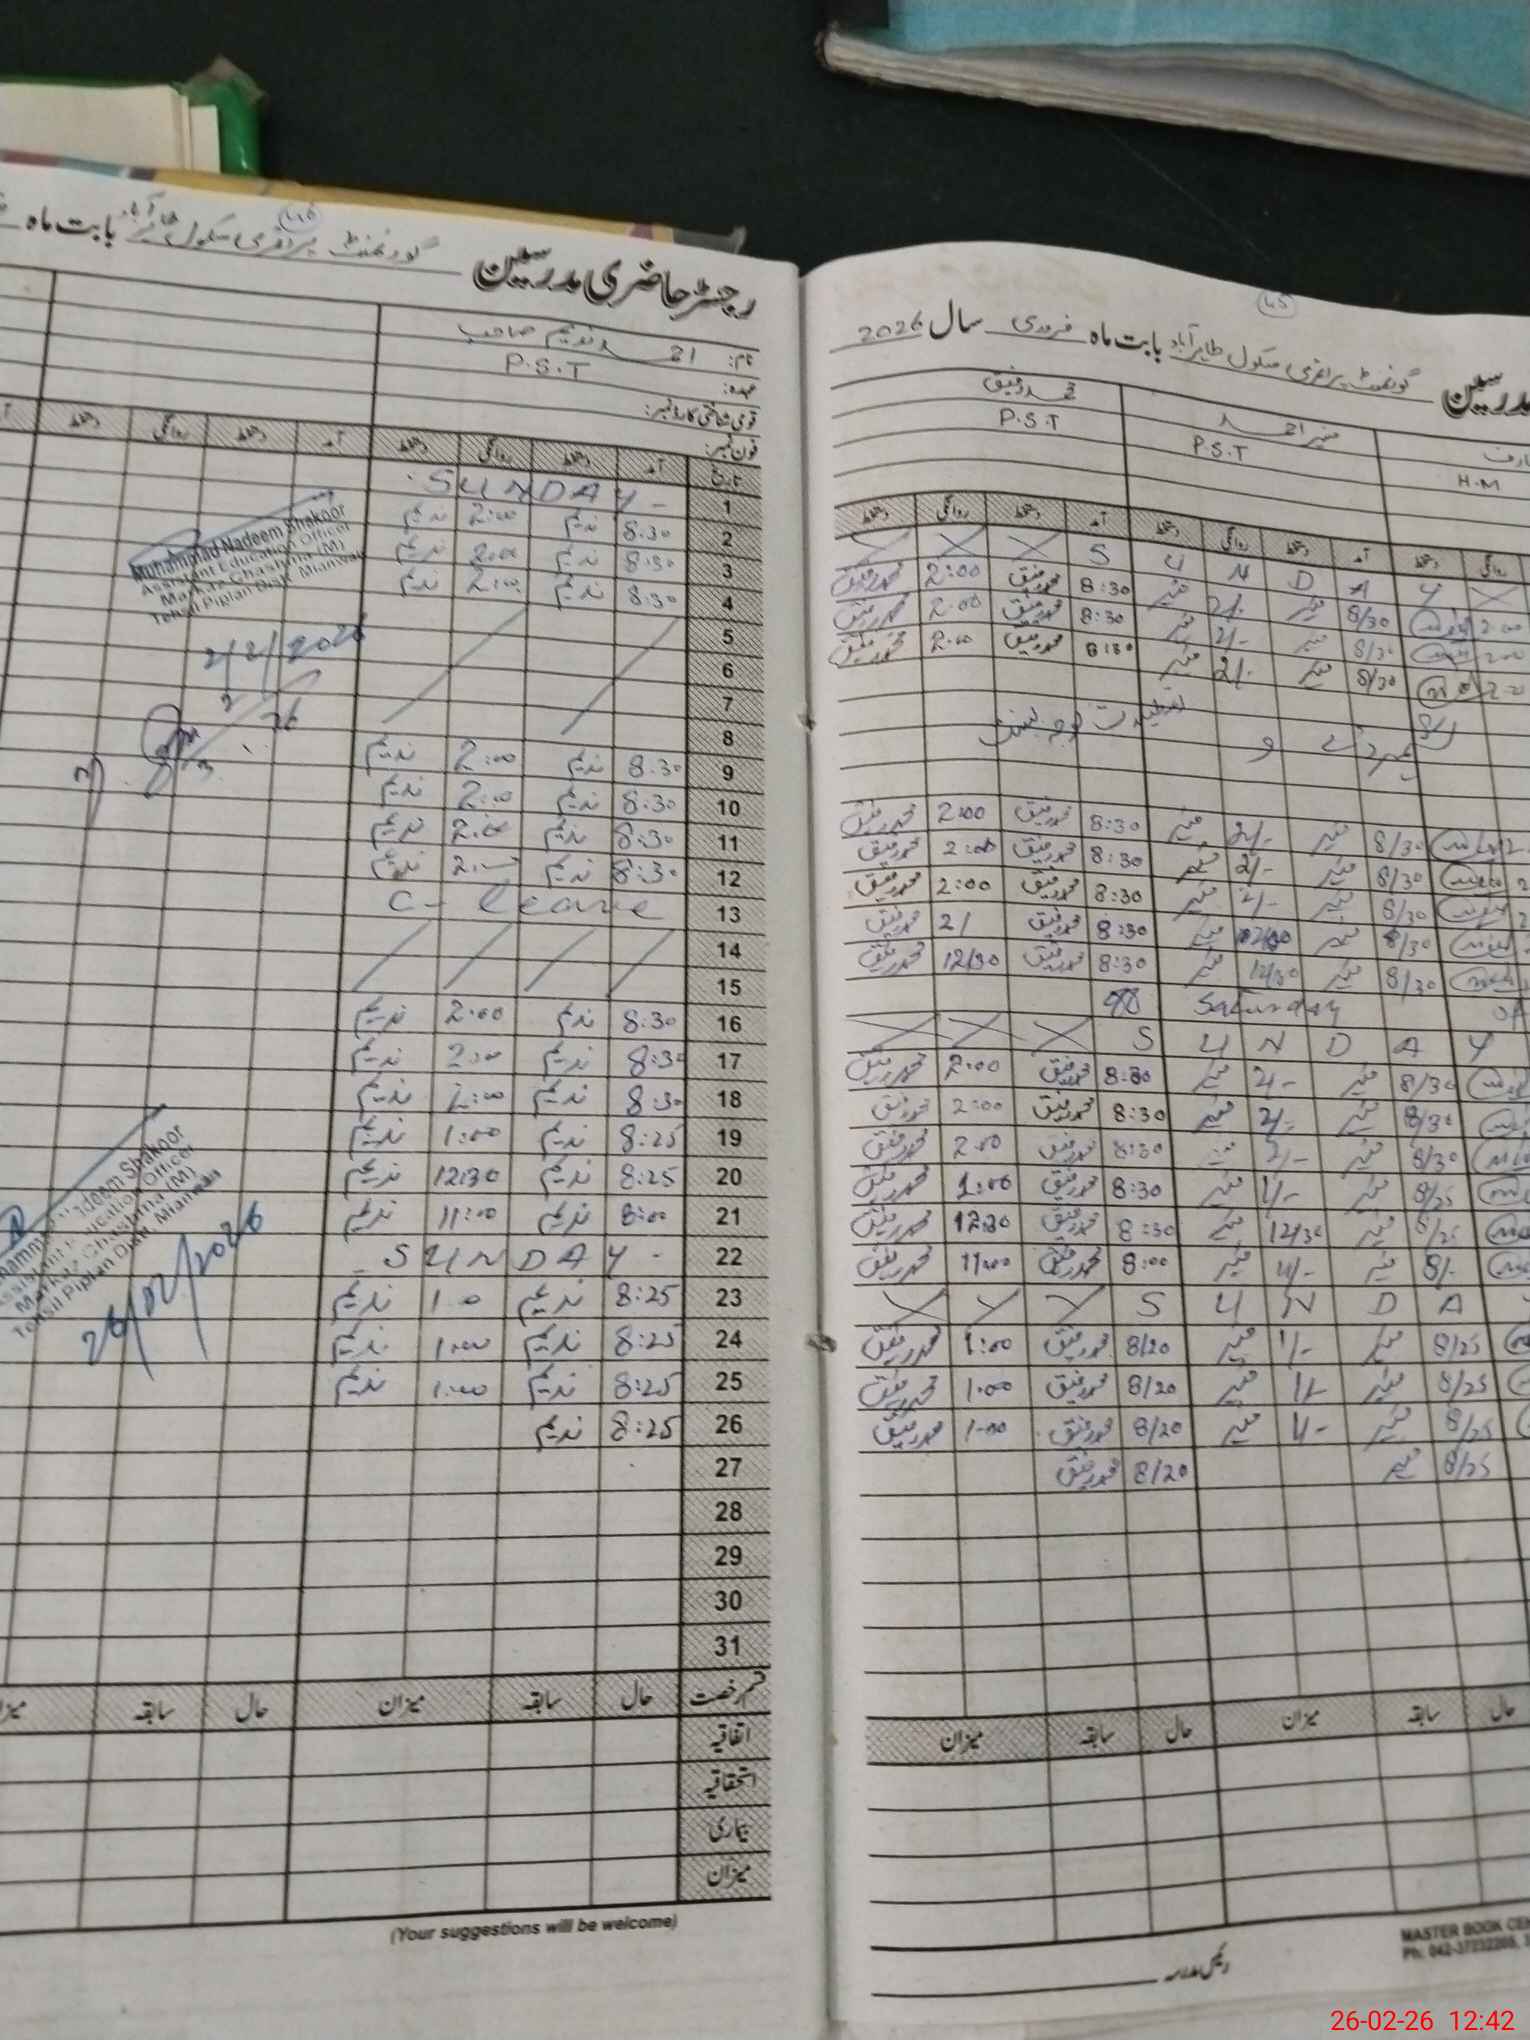 رجسٹر حاضری مدرسین گورنمنٹ پرائمری سکول بابت ماہ
46
نام: احمد ندیم صاحب
عہدہ: P.S.T
قومی شناختی کارڈ نمبر:
فون نمبر:
تاریخ آمد دستخط روانگی دستخط آمد دستخط روانگی دستخط
1 SUNDAY
2 8:30 ندیم 2:00 ندیم
3 8:30 ندیم 2:00 ندیم
4 8:30 ندیم 2:00 ندیم
5
6
7
8
9 8:30 ندیم 2:00 ندیم
10 8:30 ندیم 2:00 ندیم
11 8:30 ندیم 2:00 ندیم
12 8:30 ندیم 2:00 ندیم
13 C- leave
14
15
16 8:30 ندیم 2:00 ندیم
17 8:30 ندیم 2:00 ندیم
18 8:30 ندیم 2:00 ندیم
19 8:25 ندیم 1:00 ندیم
20 8:25 ندیم 12:30 ندیم
21 8:00 ندیم 11:00 ندیم
22 SUNDAY
23 8:25 ندیم 1:00 ندیم
24 8:25 ندیم 1:00 ندیم
25 8:25 ندیم 1:00 ندیم
26 8:25 ندیم
27
28
29
30
31
قسم رخصت حال سابقہ میزان حال سابقہ
اتفاقیہ
استحقاقیہ
بیماری
میزان
(Your suggestions will be welcome)
Muhammad Nadeem Shakoor
Assistant Education Officer
Markaz Chashma (M)
Tehsil Piplan Distt. Mianwali
2/2/2026
Nadeem Shakoor
Education Officer
Chashma (M)
Tehsil Piplan Distt. Mianwali
26/02/2026
45
مدرسین گورنمنٹ پرائمری سکول طاہر آباد بابت ماہ فروری سال 2026
منیر احمد محمد رفیق
H.M P.S.T P.S.T
روانگی دستخط آمد دستخط روانگی دستخط آمد دستخط روانگی دستخط
Y A D N U S
2:00 8/30 منیر 2/- منیر 8:30 محمد رفیق 2:00 محمد رفیق
2:00 8/30 منیر 2/- منیر 8:30 محمد رفیق 2:00 محمد رفیق
8/30 منیر 2/- منیر 8:30 محمد رفیق 2:00 محمد رفیق
8/30 منیر 2/- منیر 8:30 محمد رفیق 2:00 محمد رفیق
8/30 منیر 2/- منیر 8:30 محمد رفیق 2:00 محمد رفیق
8/30 منیر 2/- منیر 8:30 محمد رفیق 2:00 محمد رفیق
8/30 منیر منیر 8:30 محمد رفیق 2/ محمد رفیق
8/30 منیر 12/30 منیر 8:30 محمد رفیق 12/30 محمد رفیق
Saturday
S U N D A Y
8/30 منیر 2/- منیر 8:30 محمد رفیق 2:00 محمد رفیق
8/30 منیر 2/- منیر 8:30 محمد رفیق 2:00 محمد رفیق
8/30 منیر 2/- منیر 8:30 محمد رفیق 2:00 محمد رفیق
8/25 منیر 1/- منیر 8:30 محمد رفیق 1:00 محمد رفیق
8/25 منیر 12/30 منیر 8:30 محمد رفیق 12:30 محمد رفیق
8/- منیر 11/- منیر 8:00 محمد رفیق 11:00 محمد رفیق
S U N D A
8/25 منیر 1/- منیر 8/20 محمد رفیق 1:00 محمد رفیق
8/25 منیر 1/- منیر 8/20 محمد رفیق 1:00 محمد رفیق
8/25 منیر 1/- منیر 8/20 محمد رفیق 1:00 محمد رفیق
8/25 منیر 8/20 محمد رفیق
حال سابقہ میزان حال سابقہ میزان
MASTER BOOK CE
Ph: 042-37232266,
رئیس مدرسہ
26-02-26 12:42